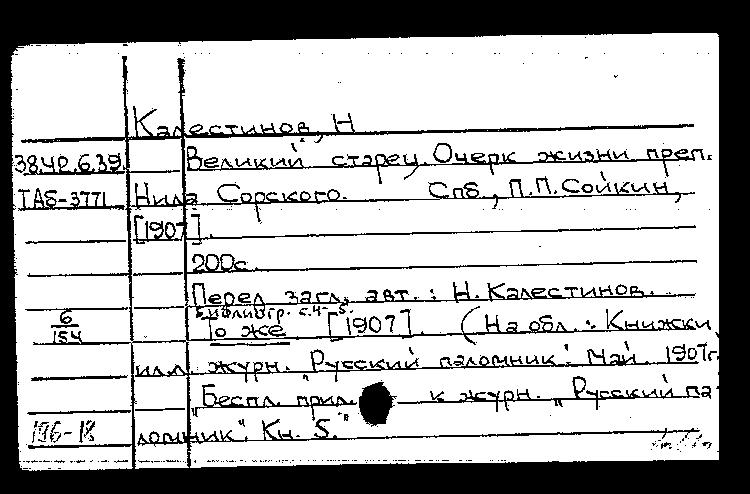 Калестинов, Н
38.42.6.39. Великий старец. Очерк жизни преп.
ТАБ-3771 Нила Сорского. Спб., П.П.Сойкин,
[1907].
200с.
Перед загл. авт.: Н. Калестинов.
Библиогр. с.4-5.
6/154 То же [1907]. (На обл.: Книжки
илл. журн. "Русский паломник". Май. 1907г.
"Беспл. прил. к журн. "Русский па-
196-18 ломник". Кн. 5."